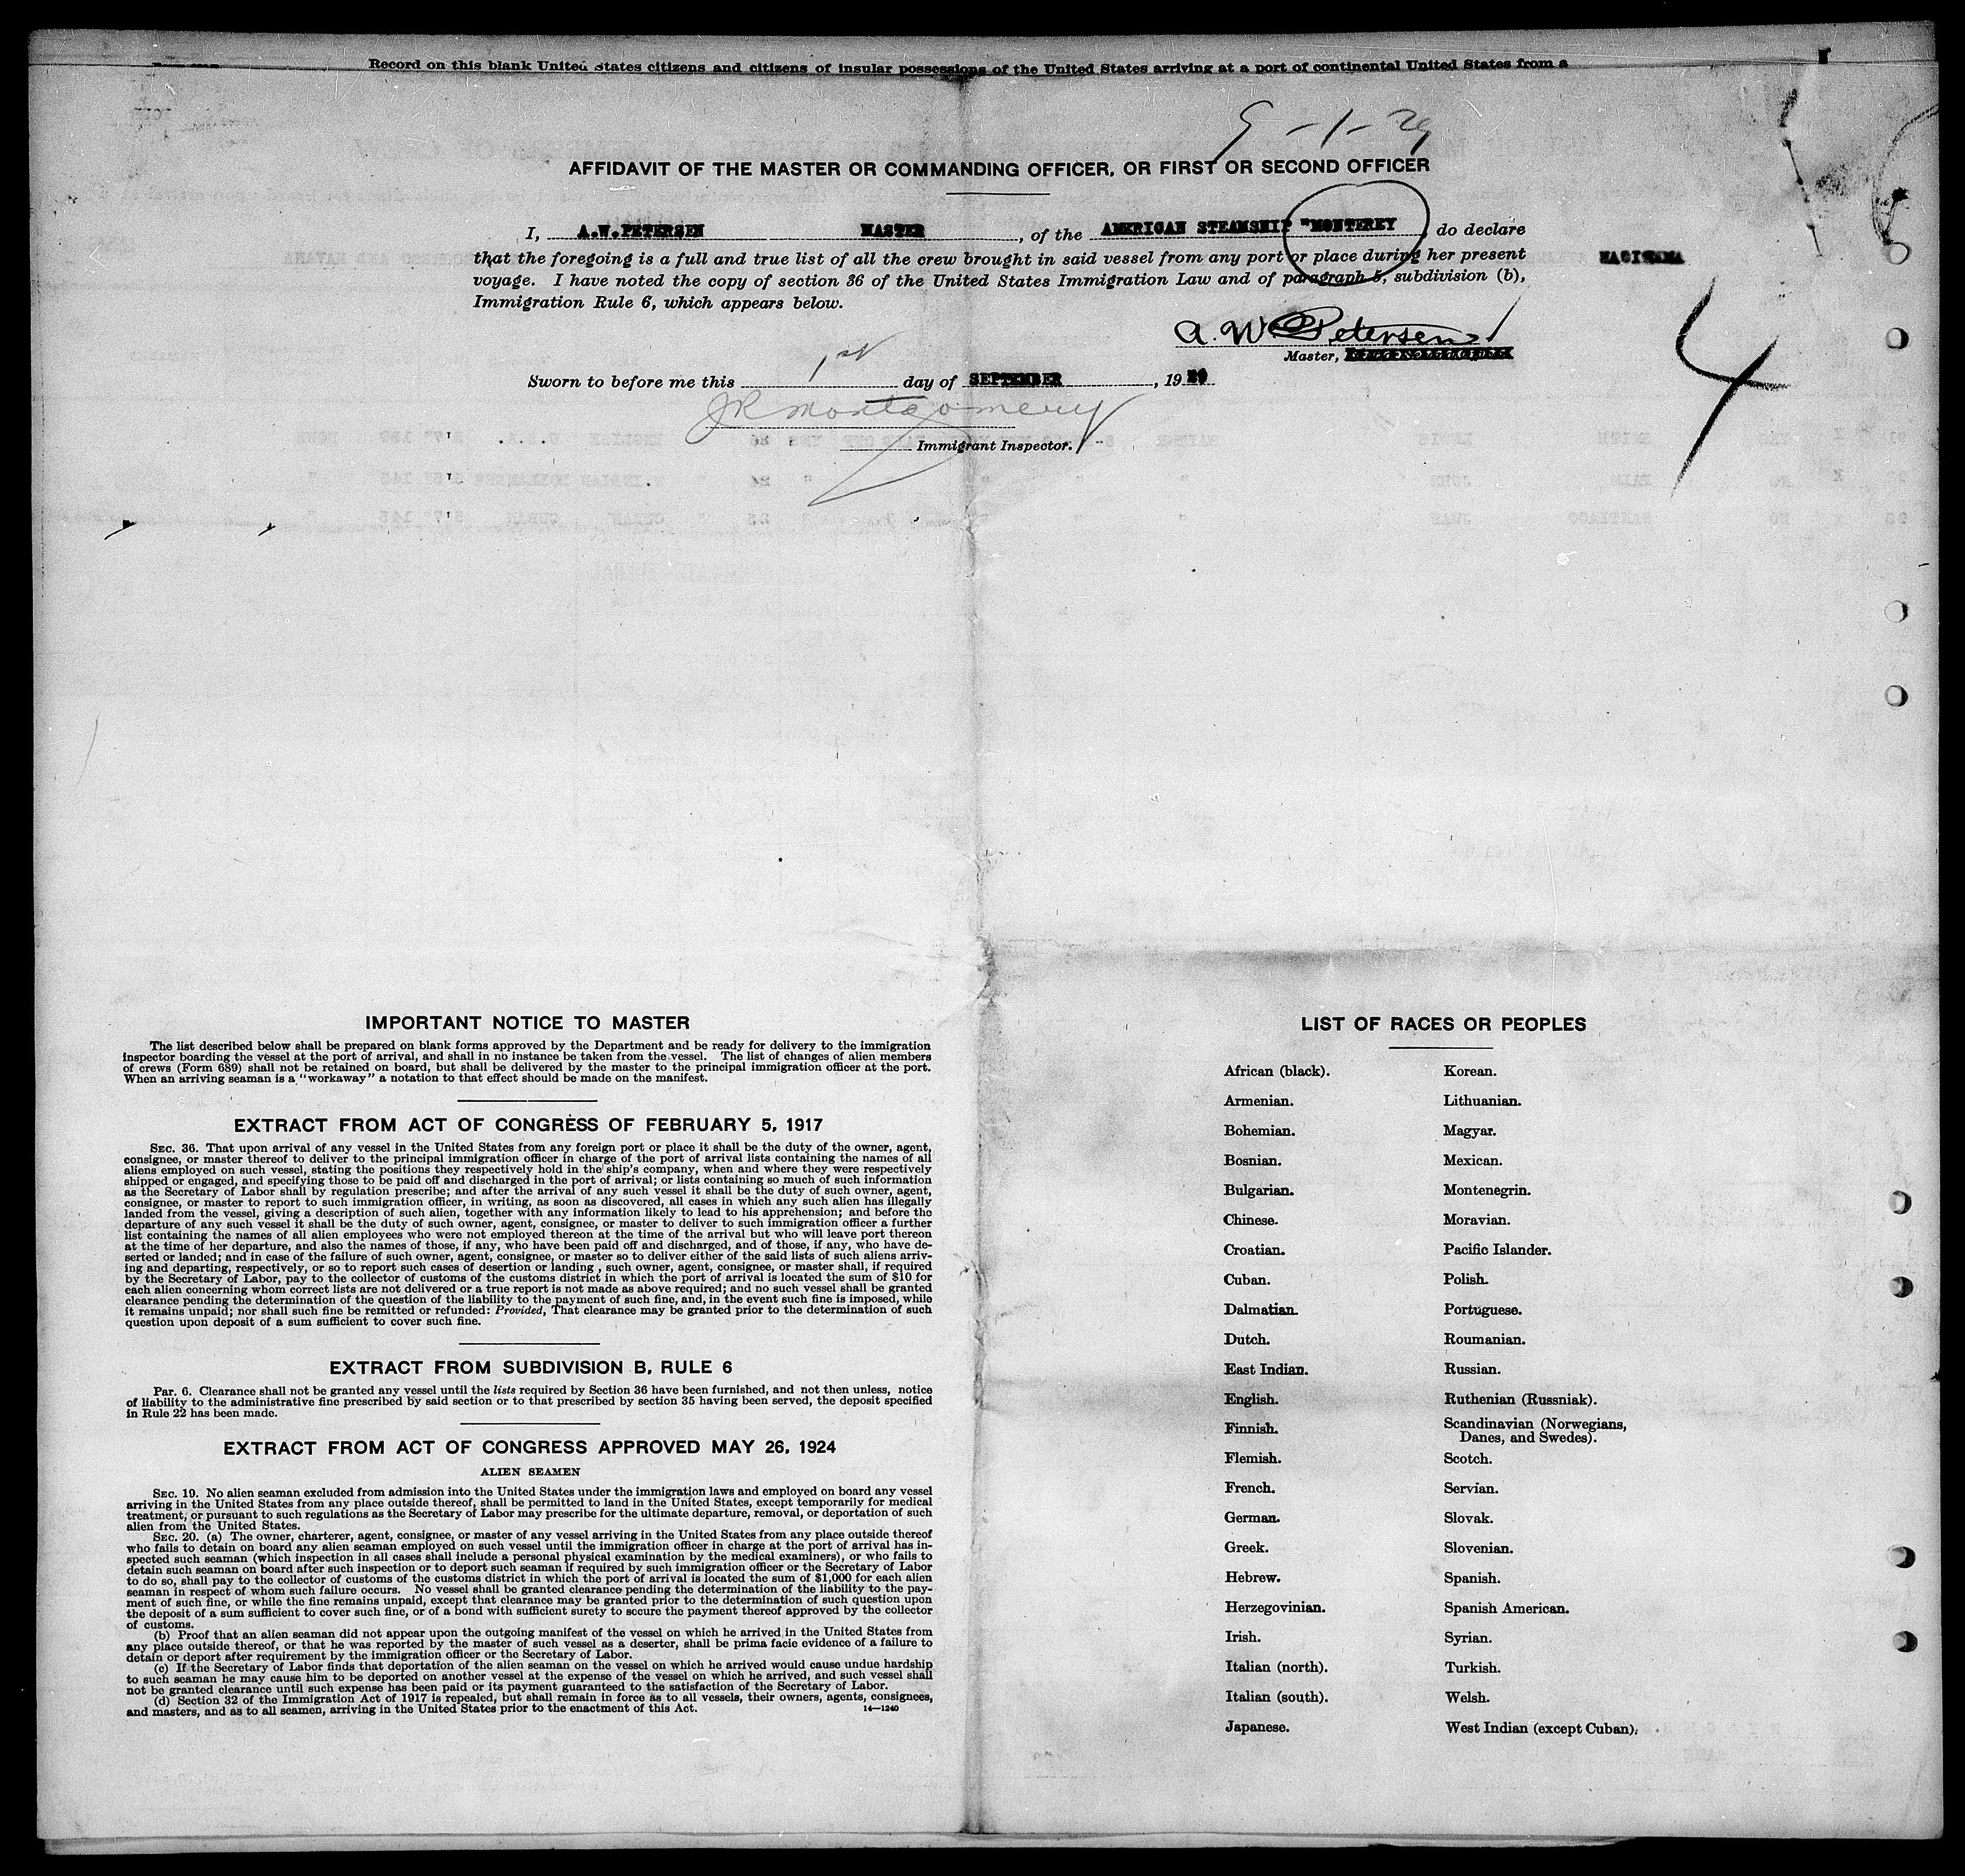 Record on this blank United States citizens and citizens of insular possessions of the United States arriving at a port of continental United States from a
9-1-29
AFFIDAVIT OF THE MASTER OR COMMANDING OFFICER, OR FIRST OR SECOND OFFICER
I, A.W.PETERSEN MASTER, of the AMERICAN STEAMSHIP "MONTEREY, do declare
that the foregoing is a full and true list of all the crew brought in said vessel from any port or place during her present
voyage. I have noted the copy of section 36 of the United States Immigration Law and of paragraph 5, subdivision (b),
Immigration Rule 6, which appears below.
4
A. W. Petersen
Master,
Sworn to before me this 1st day of SEPTEMBER, 1929
JR Montgomery
Immigrant Inspector.
IMPORTANT NOTICE TO MASTER
The list described below shall be prepared on blank forms approved by the Department and be ready for delivery to the immigration
inspector boarding the vessel at the port of arrival, and shall in no instance be taken from the vessel. The list of changes of alien members
of crews (Form 689) shall not be retained on board, but shall be delivered by the master to the principal immigration officer at the port.
When an arriving seaman is a "workaway" a notation to that effect should be made on the manifest.
EXTRACT FROM ACT OF CONGRESS OF FEBRUARY 5, 1917
SEC. 36. That upon arrival of any vessel in the United States from any foreign port or place it shall be the duty of the owner, agent,
consignee, or master thereof to deliver to the principal immigration officer in charge of the port of arrival lists containing the names of all
aliens employed on such vessel, stating the positions they respectively hold in the ship's company, when and where they were respectively
shipped or engaged, and specifying those to be paid off and discharged in the port of arrival; or lists containing so much of such information
as the Secretary of Labor shall by regulation prescribe; and after the arrival of any such vessel it shall be the duty of such owner, agent,
consignee, or master to report to such immigration officer, in writing, as soon as discovered, all cases in which any such alien has illegally
landed from the vessel, giving a description of such alien, together with any information likely to lead to his apprehension; and before the
departure of any such vessel it shall be the duty of such owner, agent, consignee, or master to deliver to such immigration officer a further
list containing the names of all alien employees who were not employed thereon at the time of the arrival but who will leave port thereon
at the time of her departure, and also the names of those, if any, who have been paid off and discharged, and of those, if any, who have de-
serted or landed; and in case of the failure of such owner, agent, consignee, or master so to deliver either of the said lists of such aliens arriv-
ing and departing, respectively, or so to report such cases of desertion or landing , such owner, agent, consignee, or master shall, if required
by the Secretary of Labor, pay to the collector of customs of the customs district in which the port of arrival is located the sum of $10 for
each alien concerning whom correct lists are not delivered or a true report is not made as above required; and no such vessel shall be granted
clearance pending the determination of the question of the liability to the payment of such fine, and, in the event such fine is imposed, while
it remains unpaid; nor shall such fine be remitted or refunded: Provided, That clearance may be granted prior to the determination of such
question upon deposit of a sum sufficient to cover such fine.
EXTRACT FROM SUBDIVISION B, RULE 6
Par. 6. Clearance shall not be granted any vessel until the lists required by Section 36 have been furnished, and not then unless, notice
of liability to the administrative fine prescribed by said section or to that prescribed by section 35 having been served, the deposit specified
in Rule 22 has been made.
EXTRACT FROM ACT OF CONGRESS APPROVED MAY 26, 1924
ALIEN SEAMEN
SEC. 19. No alien seaman excluded from admission into the United States under the immigration laws and employed on board any vessel
arriving in the United States from any place outside thereof, shall be permitted to land in the United States, except temporarily for medical
treatment, or pursuant to such regulations as the Secretary of Labor may prescribe for the ultimate departure, removal, or deportation of such
alien from the United States.
SEC. 20. (a) The owner, charterer, agent, consignee, or master of any vessel arriving in the United States from any place outside thereof
who fails to detain on board any alien seaman employed on such vessel until the immigration officer in charge at the port of arrival has in-
spected such seaman (which inspection in all cases shall include a personal physical examination by the medical examiners), or who fails to
detain such seaman on board after such inspection or to deport such seaman if required by such immigration officer or the Secretary of Labor
to do so, shall pay to the collector of customs of the customs district in which the port of arrival is located the sum of $1,000 for each alien
seaman in respect of whom such failure occurs. No vessel shall be granted clearance pending the determination of the liability to the pay-
ment of such fine, or while the fine remains unpaid, except that clearance may be granted prior to the determination of such question upon
the deposit of a sum sufficient to cover such fine, or of a bond with sufficient surety to secure the payment thereof approved by the collector
of customs.
(b) Proof that an alien seaman did not appear upon the outgoing manifest of the vessel on which he arrived in the United States from
any place outside thereof, or that he was reported by the master of such vessel as a deserter, shall be prima facie evidence of a failure to
detain or deport after requirement by the immigration officer or the Secretary of Labor.
(c) If the Secretary of Labor finds that deportation of the alien seaman on the vessel on which he arrived would cause undue hardship
to such seaman he may cause him to be deported on another vessel at the expense of the vessel on which he arrived, and such vessel shall
not be granted clearance until such expense has been paid or its payment guaranteed to the satisfaction of the Secretary of Labor.
(d) Section 32 of the Immigration Act of 1917 is repealed, but shall remain in force as to all vessels, their owners, agents, consignees,
and masters, and as to all seamen, arriving in the United States prior to the enactment of this Act.
14—1240
LIST OF RACES OR PEOPLES
African (black). Korean.
Armenian. Lithuanian.
Bohemian. Magyar.
Bosnian. Mexican.
Bulgarian. Montenegrin.
Chinese. Moravian.
Croatian. Pacific Islander.
Cuban. Polish.
Dalmatian. Portuguese.
Dutch. Roumanian.
East Indian. Russian.
English. Ruthenian (Russniak).
Finnish. Scandinavian (Norwegians,
Danes, and Swedes).
Flemish. Scotch.
French. Servian.
German. Slovak.
Greek. Slovenian.
Hebrew. Spanish.
Herzegovinian. Spanish American.
Irish. Syrian.
Italian (north). Turkish.
Italian (south). Welsh.
Japanese. West Indian (except Cuban).